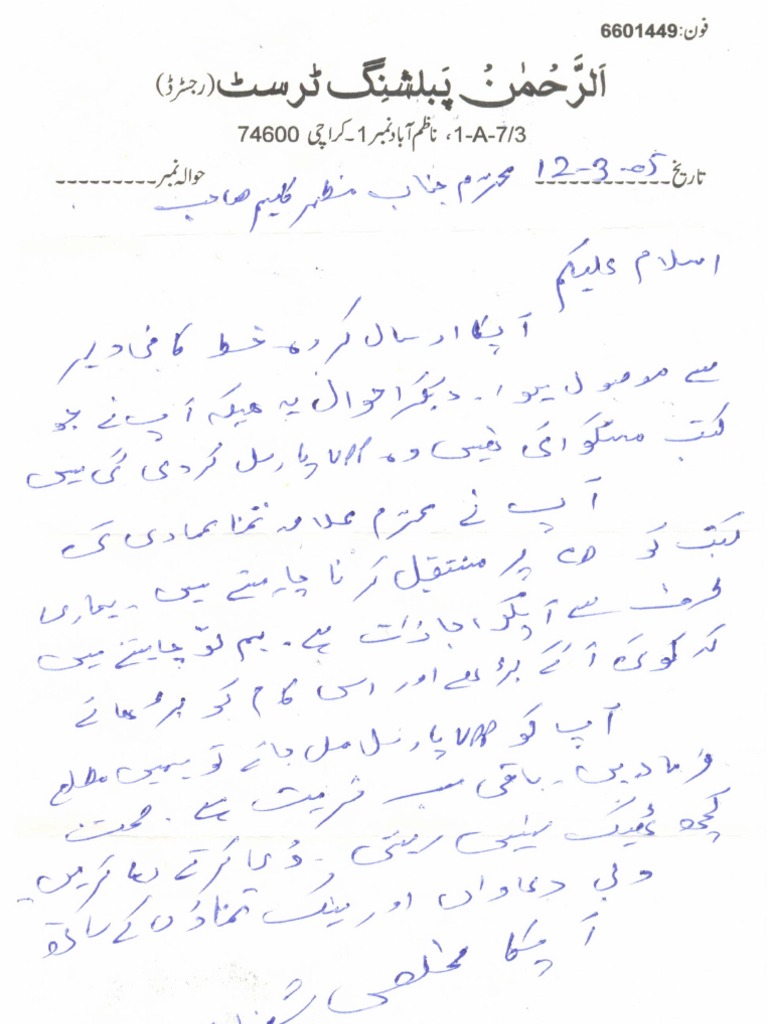 فون:6601449
اَلرَّحْمٰنْ پَبلشنِگ ٹرسٹ (رجسٹرڈ)
1-A-7/3، ناظم آباد نمبر 1۔کراچی 74600
تاریخ 12-3-05 حوالہ نمبر
محترم جناب مظہر کلیم صاحب
اسلام علیکم
آپکا ارسال کردہ خط کافی دیر
سے موصول ہوا۔ دیگر احوال یہ ہیکہ آپ نے جو
کتب منگوائی تھیں وہ VPP پارسل کردی گئی ہیں
آپ نے محترم علامہ تمنا عمادی کی
کتب کو CD پر منتقل کرنا چاہتے ہیں۔ ہماری
طرف سے آپکو اجازات ہے۔ ہم تو چاہتے ہیں
کہ کوئی آگے بڑھے اور اس کام کو بڑھائے
آپ کو VPP پارسل مل جائے تو ہمیں مطلع
فرمادیں۔ باقی سب خریت ہے۔ صحت
کچھ ٹھیک نہیں رہتی۔ دُعا کرتے رہا کریں۔
دلی دعاواں اور نیک تمناؤں کے ساتھ
آپکا مخلص